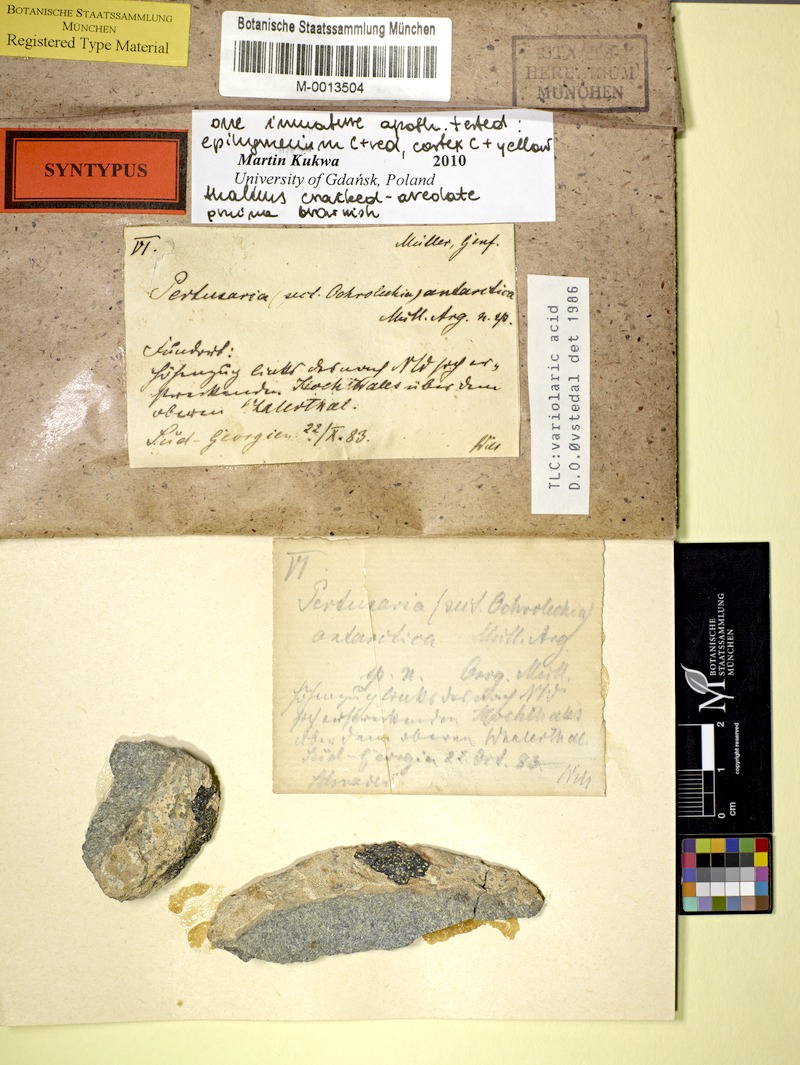 BOTANISCHE STAATSSAMMLUNG
MÜNCHEN
Registered Type Material
Botanische Staatssammlung München
M-0013504
HERBARIUM
MÜNCHEN
SYNTYPUS
one immature apoth. tested:
epihymenium C+red, cortex C+yellow
Martin Kukwa 2010
University of Gdańsk, Poland
thallus cracked-areolate
pruina brownish
VI. Müller, Genf.
Pertusaria (sect. Ochrolechia) antarctica
Müll. Arg. n. sp.
Fundort:
Höhenzug links des nach NW sich er-
streckenden Hochthales über dem
oberen Whalerthal.
Süd-Georgien 22/X. 83.
Will
TLC: variolaric acid
D.O.Øvstedal det 1986
VI
Pertusaria (sect. Ochrolechia)
antarctica Müll. Arg
sp. n. Müll.
Höhenzug links des nach NW
sich erstreckenden Hochthales
über dem oberen Whalerthal
Süd-Georgien 22 Oct. 83
Will
BOTANISCHE
STAATSSAMMLUNG
MÜNCHEN
copyright reserved
0 1 2
cm